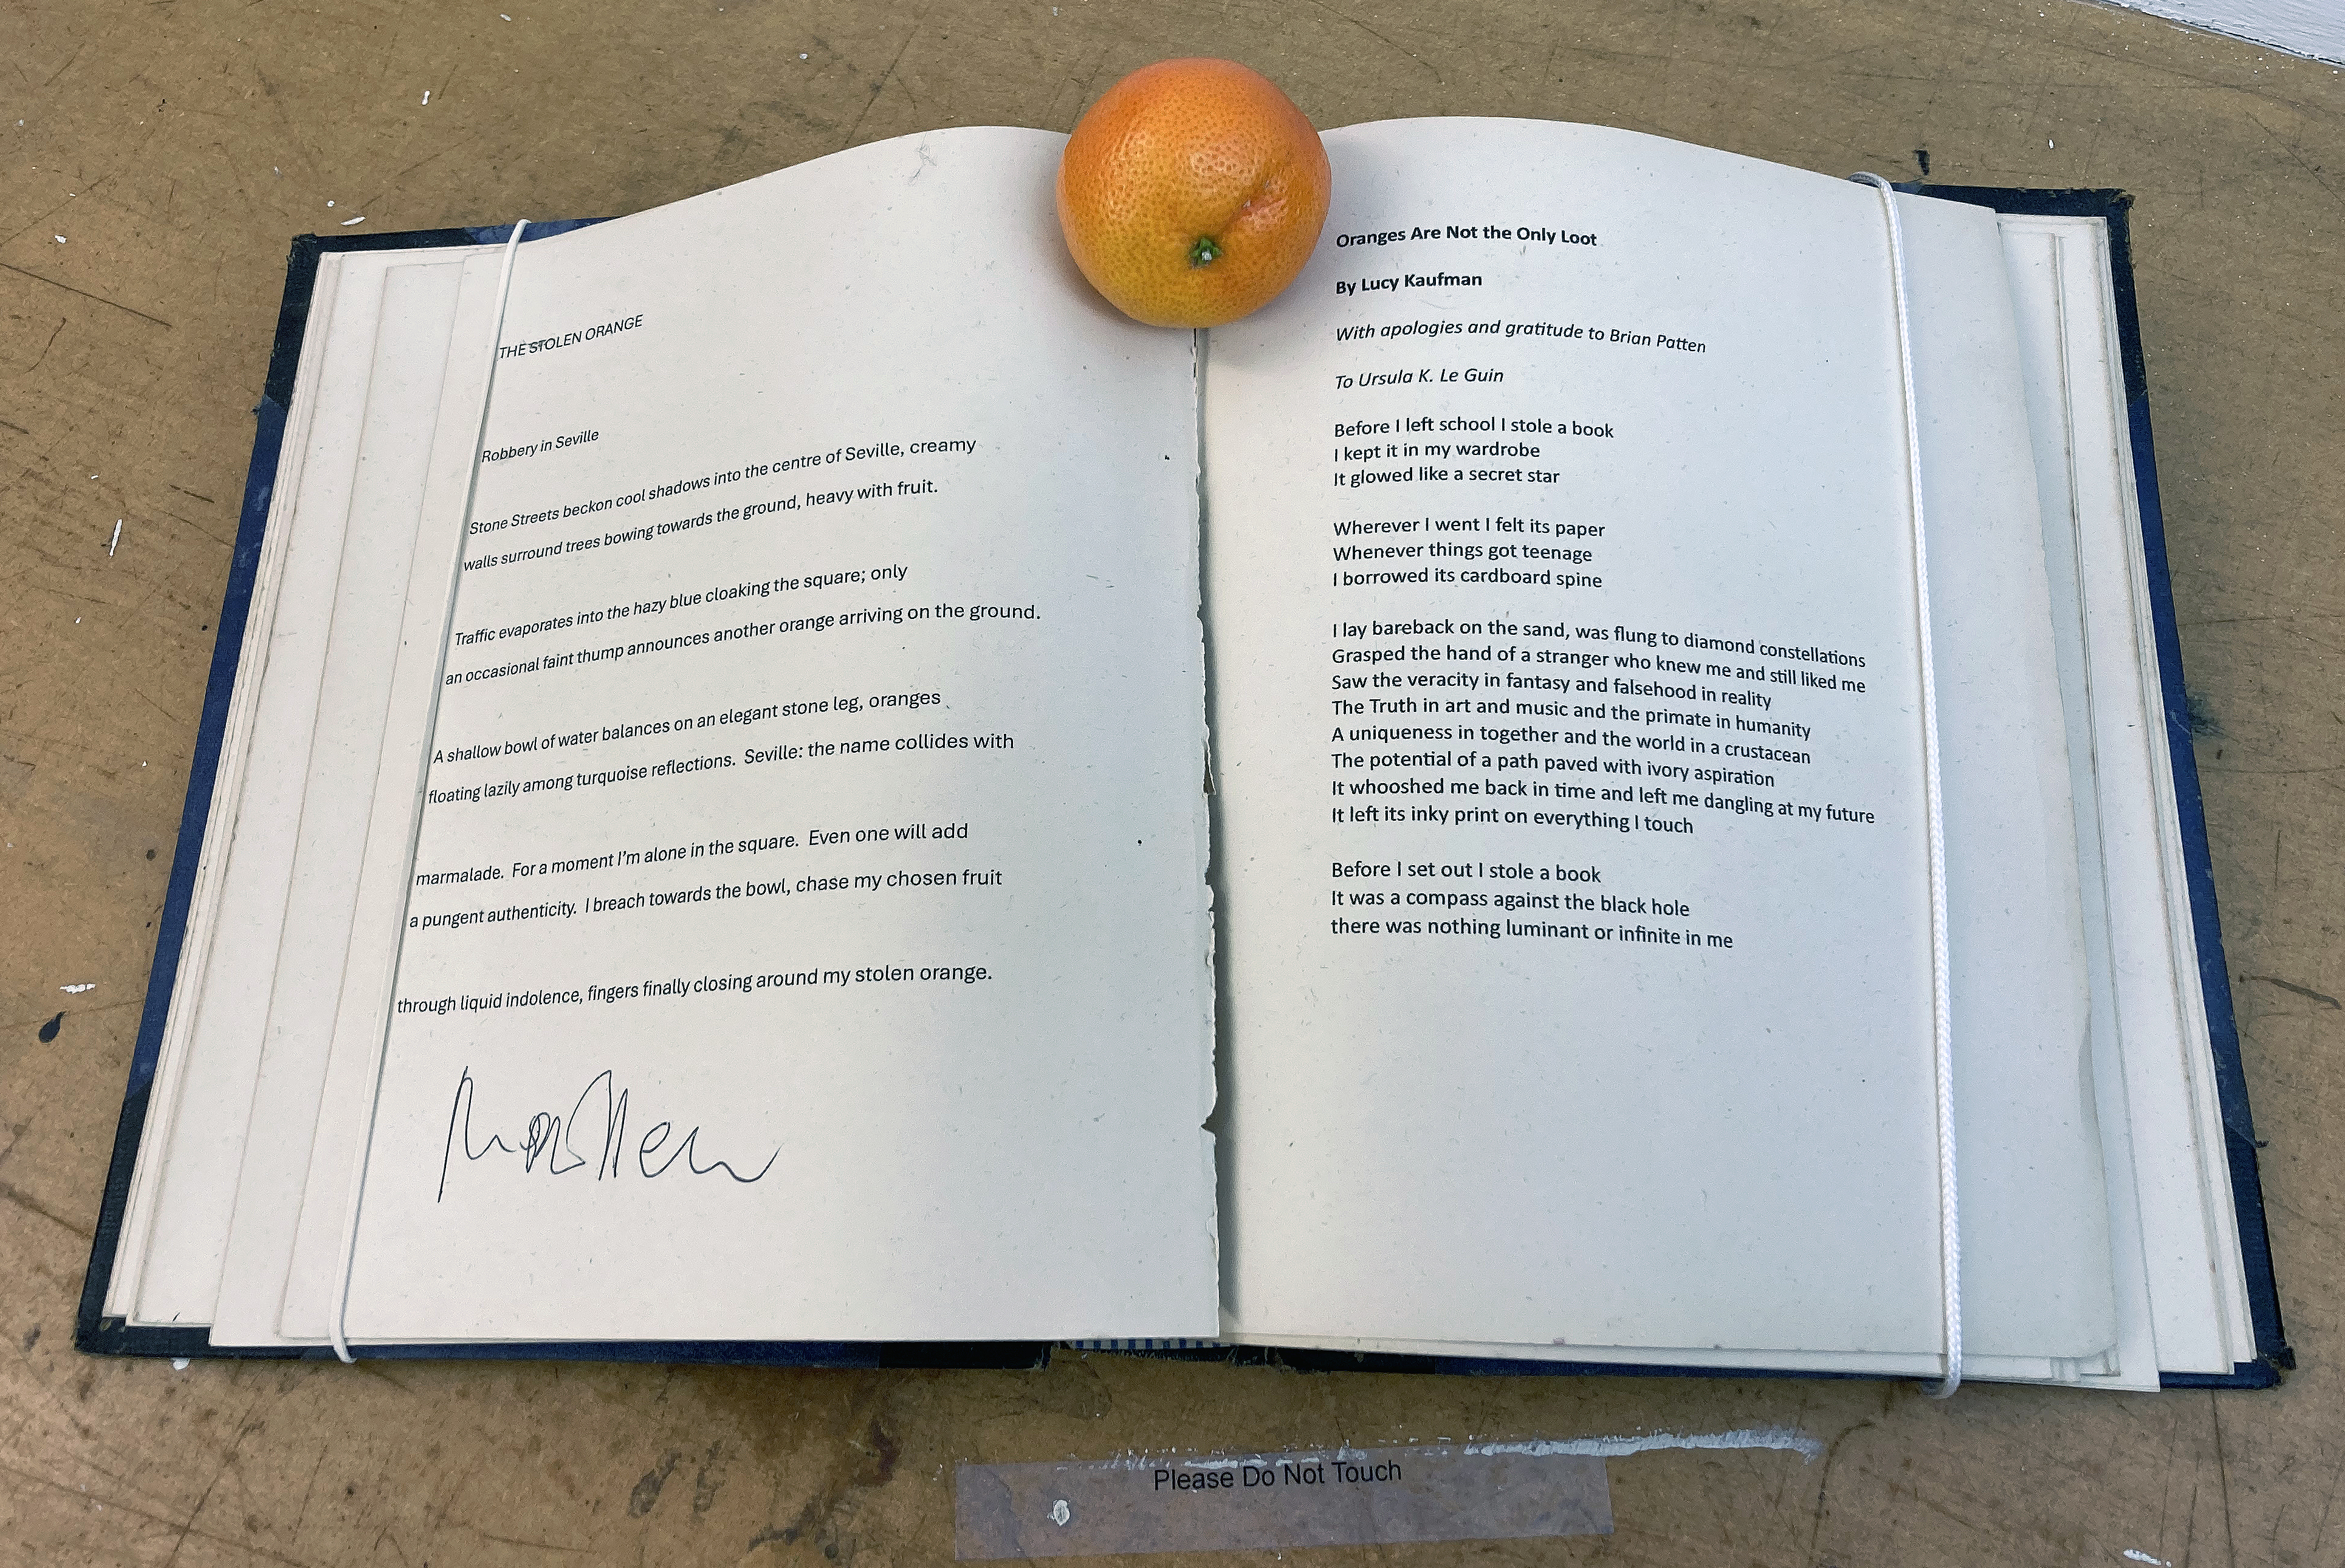 THE STOLEN ORANGE
Robbery in Seville
Stone Streets beckon cool shadows into the centre of Seville, creamy
walls surround trees bowing towards the ground, heavy with fruit.
Traffic evaporates into the hazy blue cloaking the square; only
an occasional faint thump announces another orange arriving on the ground.
A shallow bowl of water balances on an elegant stone leg, oranges
floating lazily among turquoise reflections.  Seville: the name collides with
marmalade.  For a moment I'm alone in the square.  Even one will add
a pungent authenticity.  I breach towards the bowl, chase my chosen fruit
through liquid indolence, fingers finally closing around my stolen orange.
Oranges Are Not the Only Loot
By Lucy Kaufman
With apologies and gratitude to Brian Patten
To Ursula K. Le Guin
Before I left school I stole a book
I kept it in my wardrobe
It glowed like a secret star
Wherever I went I felt its paper
Whenever things got teenage
I borrowed its cardboard spine
I lay bareback on the sand, was flung to diamond constellations
Grasped the hand of a stranger who knew me and still liked me
Saw the veracity in fantasy and falsehood in reality
The Truth in art and music and the primate in humanity
A uniqueness in together and the world in a crustacean
The potential of a path paved with ivory aspiration
It whooshed me back in time and left me dangling at my future
It left its inky print on everything I touch
Before I set out I stole a book
It was a compass against the black hole
there was nothing luminant or infinite in me
Please Do Not Touch